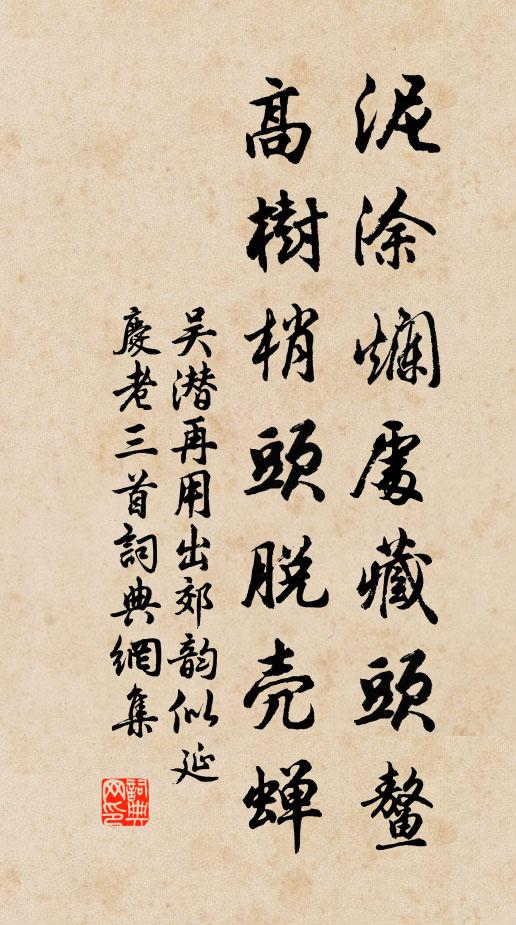 泥涂爛處藏頭鼇
高樹梢頭脱壳蝉
吴潜再用出郊韵似延
慶老三首詞典網集
詞典网印